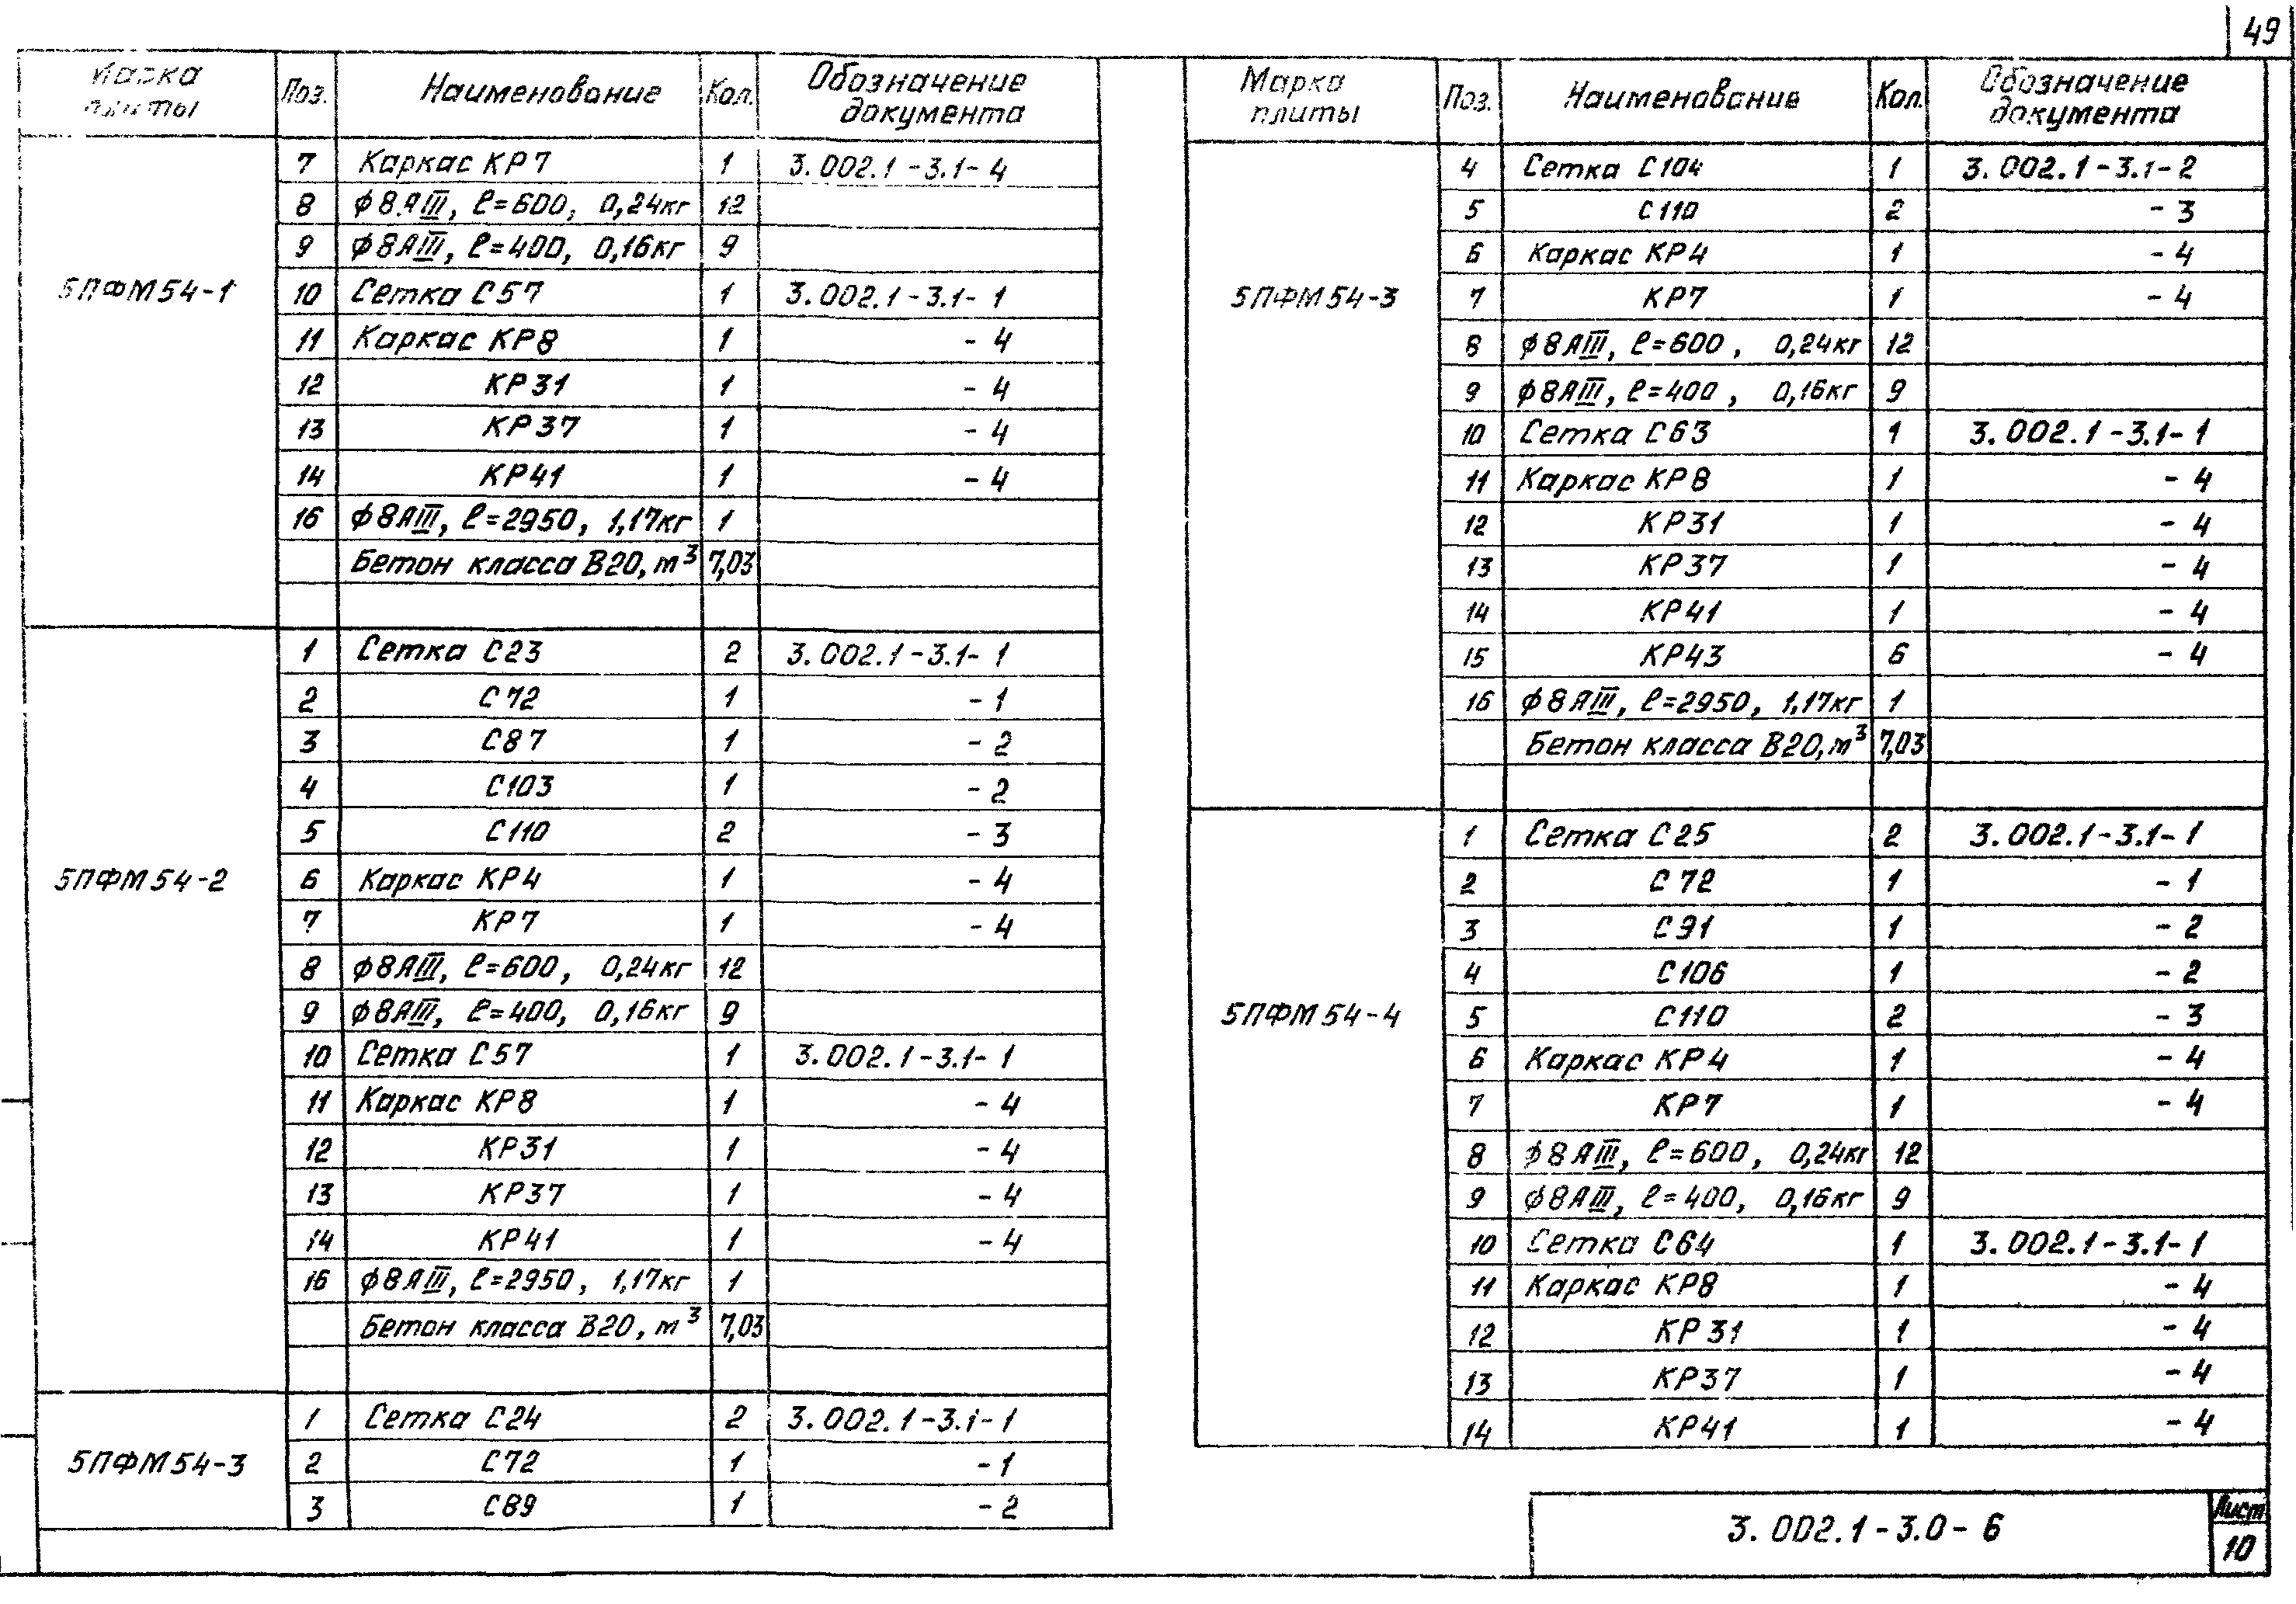 49
Марка плиты Поз. Наименование Кол. Обозначение документа
5ПФМ54-1
7 Каркас КР7 1 3.002.1-3.1-4
8 ϕ8АIII, ℓ=600, 0,24кг 12
9 ϕ8АIII, ℓ=400, 0,16кг 9
10 Сетка С57 1 3.002.1-3.1-1
11 Каркас КР8 1 -4
12 КР31 1 -4
13 КР37 1 -4
14 КР41 1 -4
16 ϕ8АIII, ℓ=2950, 1,17кг 1
Бетон класса В20, м³ 7,03
5ПФМ54-2
1 Сетка С23 2 3.002.1-3.1-1
2 С72 1 -1
3 С87 1 -2
4 С103 1 -2
5 С110 2 -3
6 Каркас КР4 1 -4
7 КР7 1 -4
8 ϕ8АIII, ℓ=600, 0,24кг 12
9 ϕ8АIII, ℓ=400, 0,16кг 9
10 Сетка С57 1 3.002.1-3.1-1
11 Каркас КР8 1 -4
12 КР31 1 -4
13 КР37 1 -4
14 КР41 1 -4
16 ϕ8АIII, ℓ=2950, 1,17кг 1
Бетон класса В20, м³ 7,03
5ПФМ54-3
1 Сетка С24 2 3.002.1-3.1-1
2 С72 1 -1
3 С89 1 -2
Марка плиты Поз. Наименование Кол. Обозначение документа
5ПФМ54-3
4 Сетка С104 1 3.002.1-3.1-2
5 С110 2 -3
6 Каркас КР4 1 -4
7 КР7 1 -4
8 ϕ8АIII, ℓ=600, 0,24кг 12
9 ϕ8АIII, ℓ=400, 0,16кг 9
10 Сетка С63 1 3.002.1-3.1-1
11 Каркас КР8 1 -4
12 КР31 1 -4
13 КР37 1 -4
14 КР41 1 -4
15 КР43 6 -4
16 ϕ8АIII, ℓ=2950, 1,17кг 1
Бетон класса В20, м³ 7,03
5ПФМ54-4
1 Сетка С25 2 3.002.1-3.1-1
2 С72 1 -1
3 С91 1 -2
4 С106 1 -2
5 С110 2 -3
6 Каркас КР4 1 -4
7 КР7 1 -4
8 ϕ8АIII, ℓ=600, 0,24кг 12
9 ϕ8АIII, ℓ=400, 0,16кг 9
10 Сетка С64 1 3.002.1-3.1-1
11 Каркас КР8 1 -4
12 КР31 1 -4
13 КР37 1 -4
14 КР41 1 -4
3.002.1-3.0-6
Лист
10